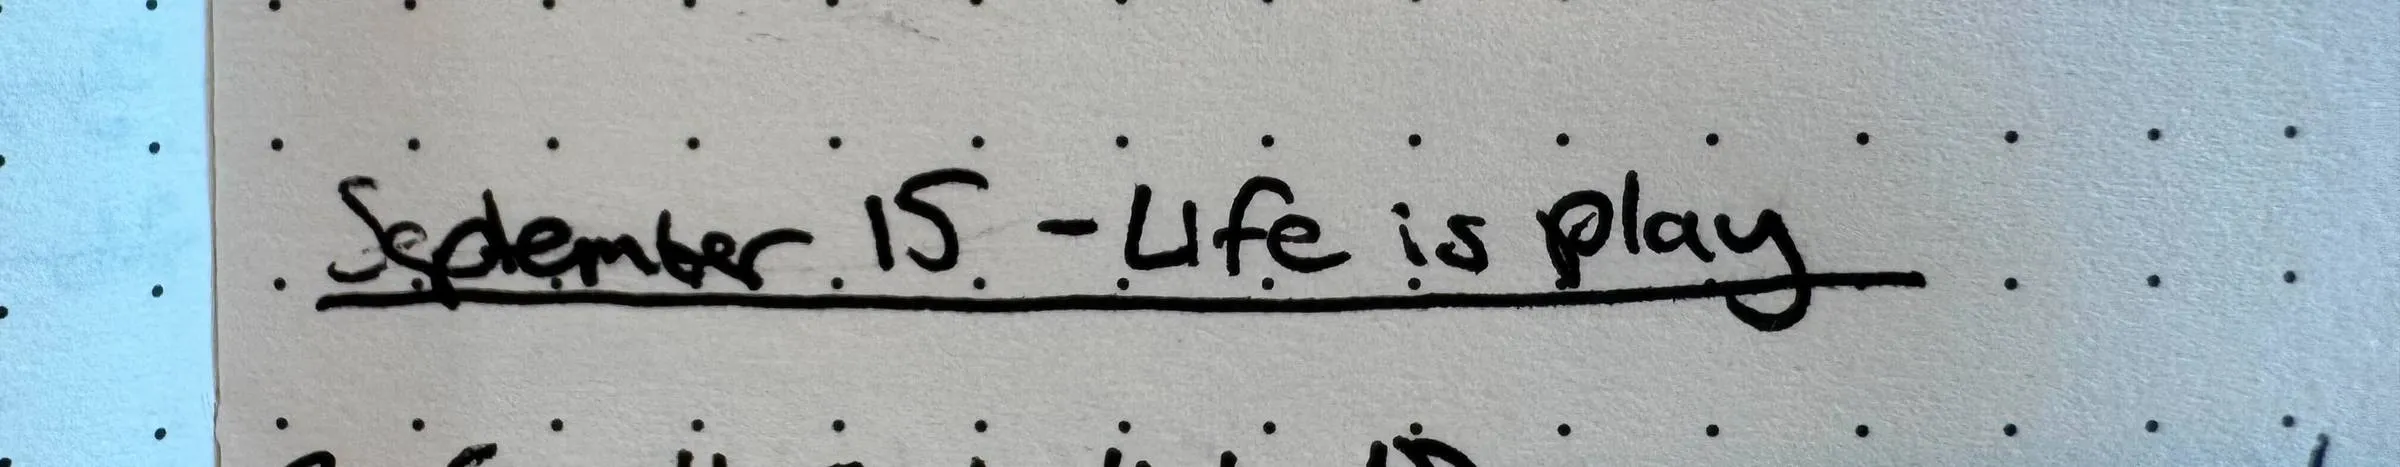 September 15 - Life is play